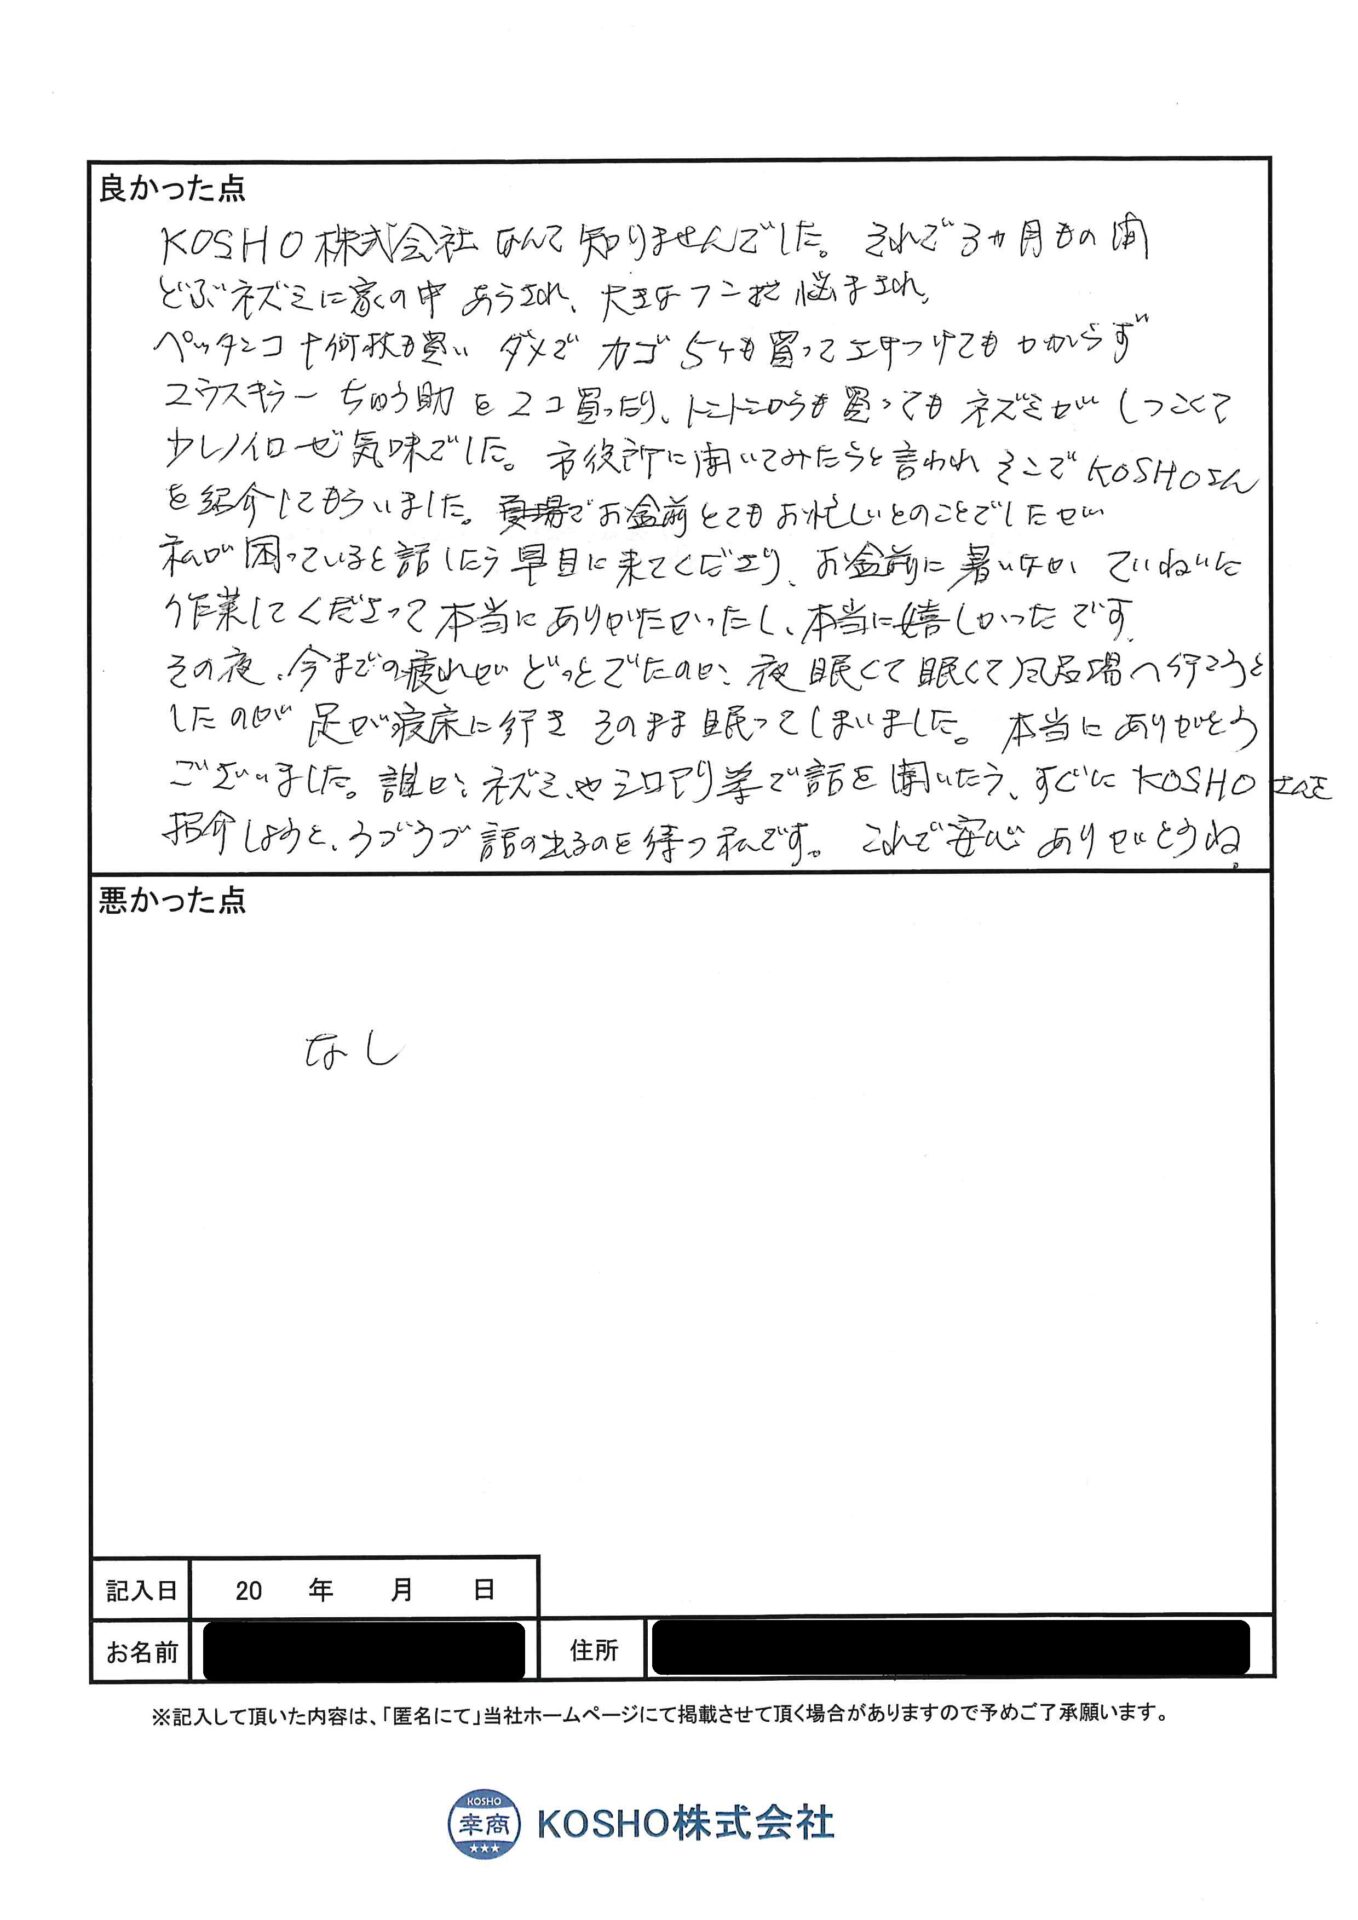 良かった点
KOSHO株式会社なんて知りませんでした。それで3ヵ月もの間
どぶネズミに家の中あらされ、大きなフンに悩まされ、
ペッタンコ十何枚も買い ダメで カゴ5ヶも買ってエサつけてもかからず
マウスキラー ちゅう助を2コ買ったり、トントンからも買ってもネズミがしつこくて
少しノイローゼ気味でした。市役所に聞いてみたらと言われそこでKOSHOさん
を紹介してもらいました。夏場でお盆前とてもお忙しいとのことでしたが
私が困っていると話したら早目に来てくださり、お盆前に暑いなか ていねいに
作業してくださって本当にありがたかったし、本当に嬉しかったです。
その夜、今までの疲れがどっとでたのか、夜眠くて眠くて風呂場へ行こうと
したのが足が寝床に行き そのまま眠ってしまいました。本当にありがとう
ございました。誰か、ネズミ、やシロアリ等で話を聞いたら、すぐにKOSHOさんを
紹介しようと、うづうづ話の出るのを待つ私です。これで安心ありがとうね。
悪かった点
なし
記入日 20 年 月 日
お名前 住所
※記入して頂いた内容は、「匿名にて」当社ホームページにて掲載させて頂く場合がありますので予めご了承願います。
KOSHO
幸商
KOSHO株式会社